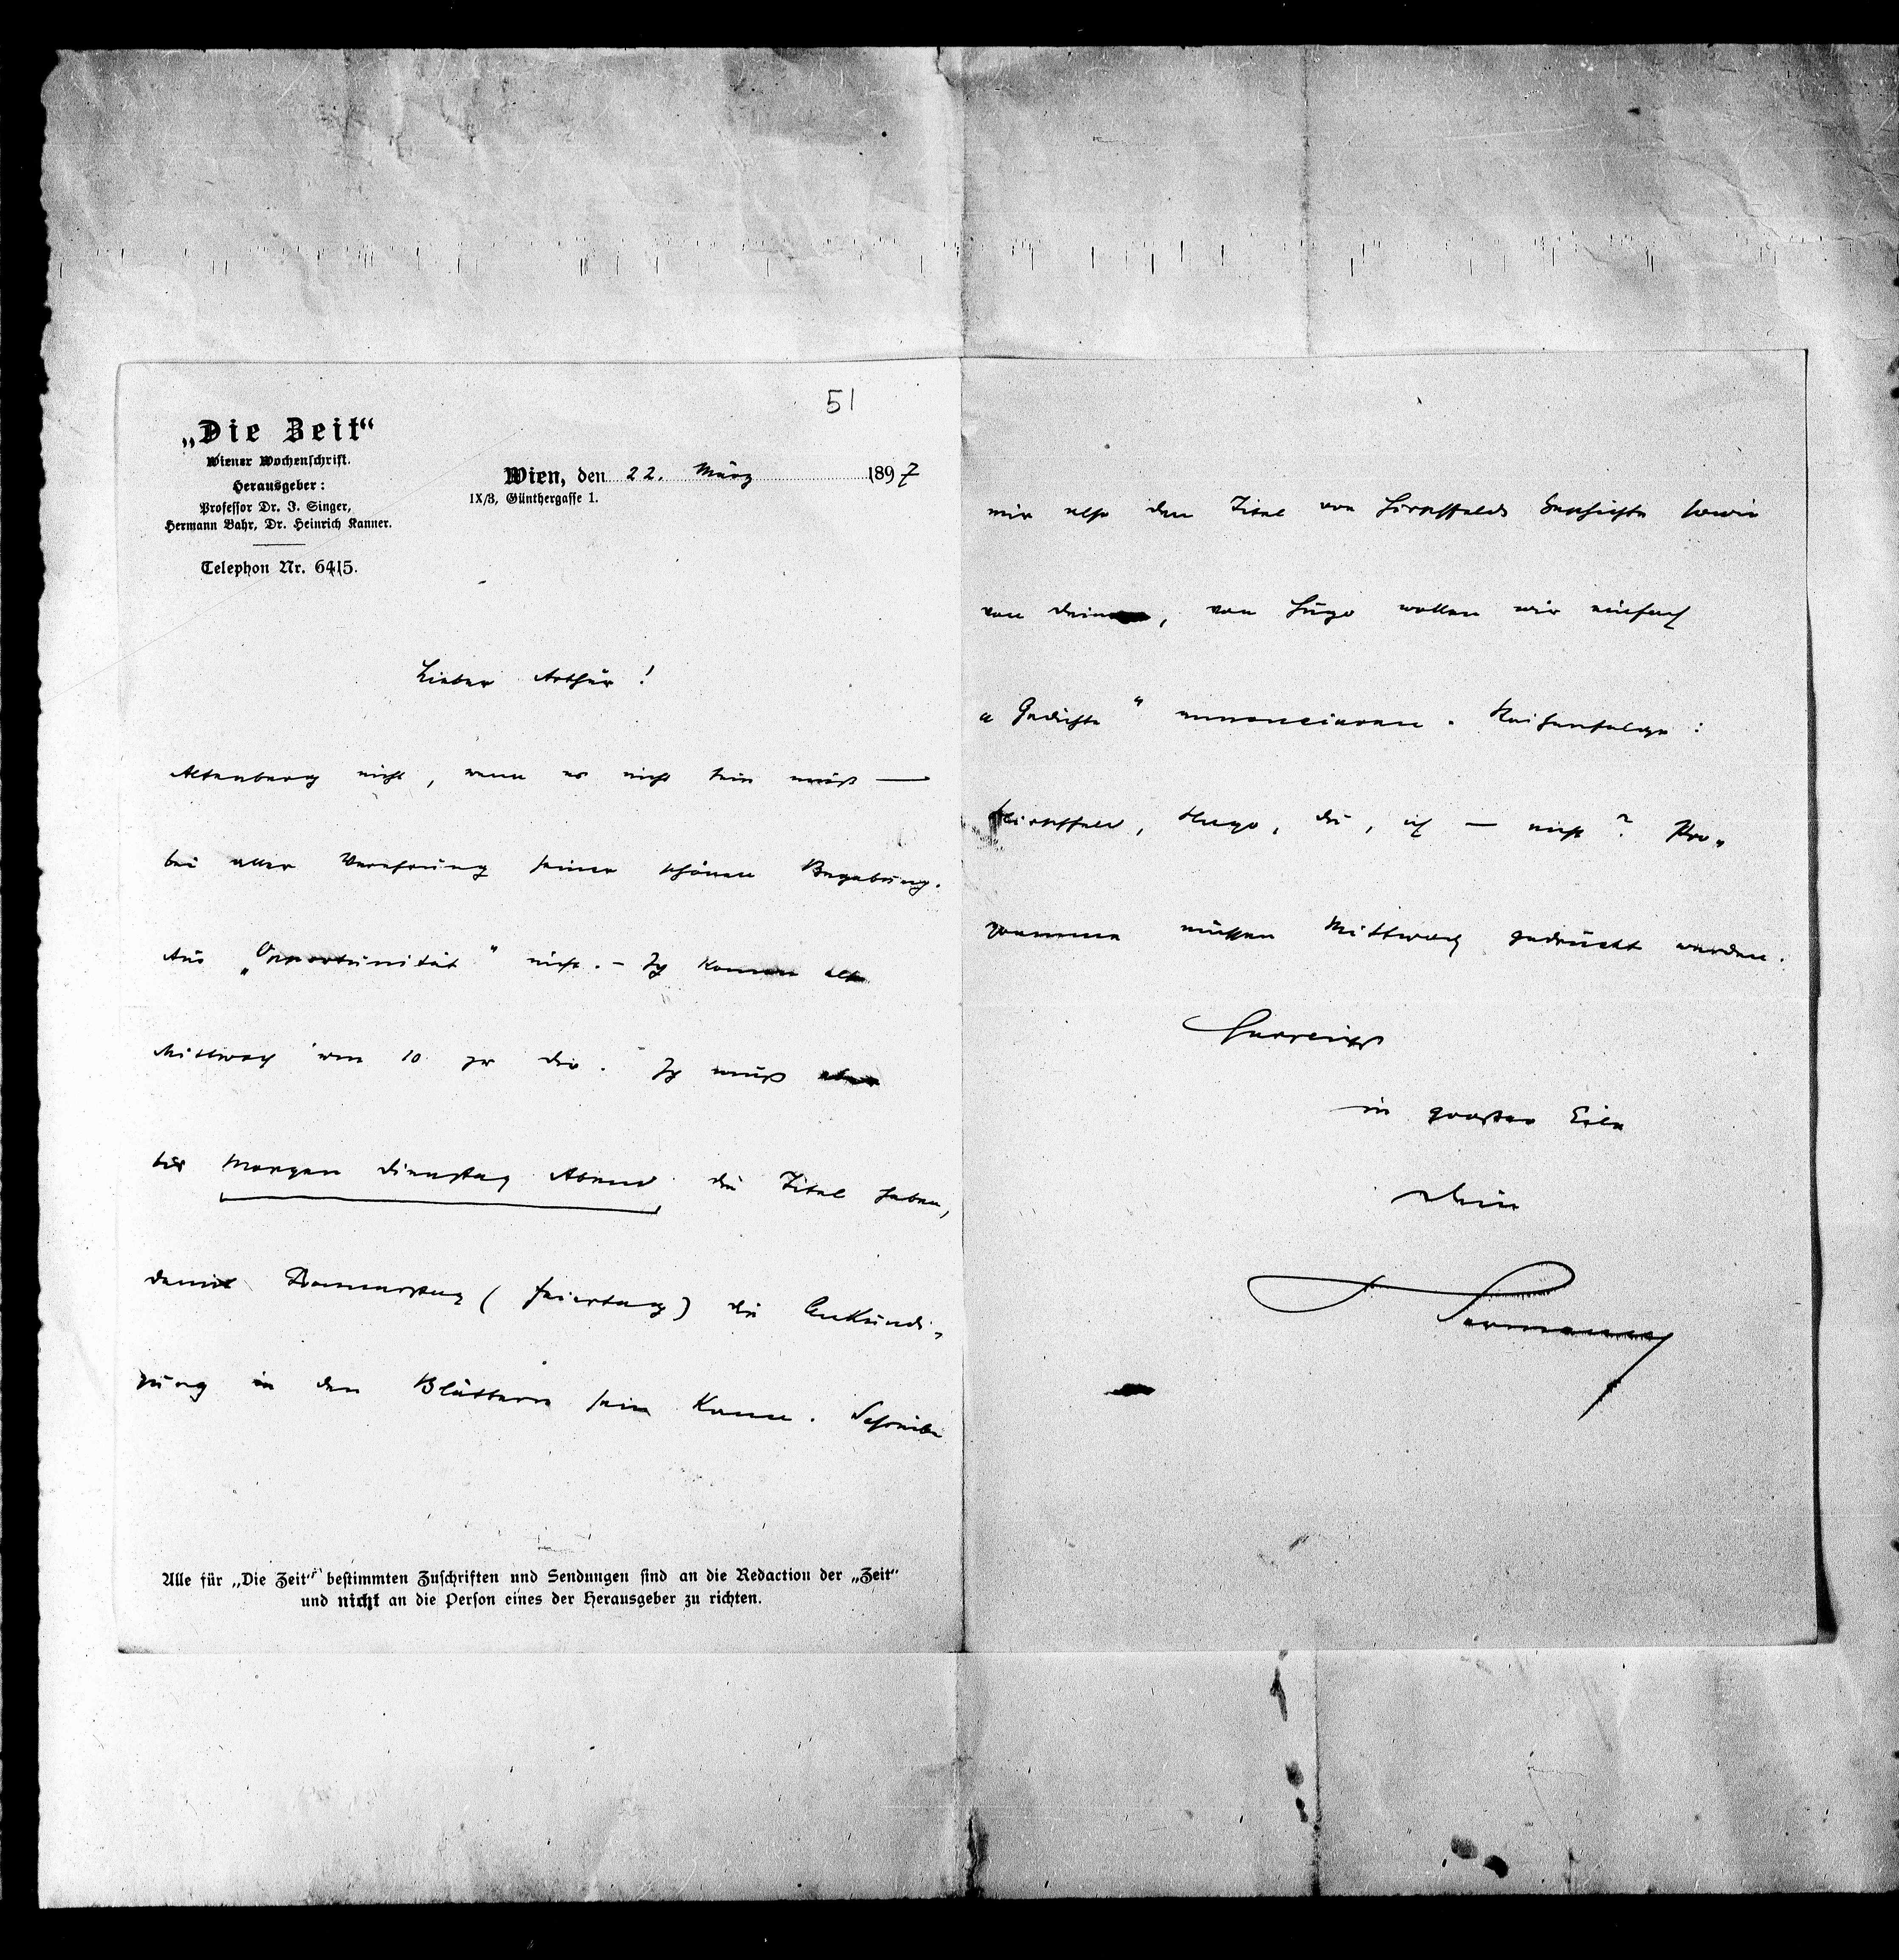 51
„Die Zeit“
Wiener Wochenschrift.
Herausgeber:
Professor Dr. I. Singer,
Hermann Bahr, Dr. Heinrich Kanner.
Telephon Nr. 6415.
Wien, den 22. März 1897
IX/3, Günthergasse 1.
Lieber Arthur!
Altenberg nicht, wenn es nicht sein muß —
bei aller Verehrung seiner schönen Begabung.
Aus „Opportunität“ nicht. – Ich komme also
Mittwoch um 10 zu dir. Ich muß aber
bis Morgen Dienstag Abend die Titel haben,
damit Donnerstag (Feiertag) die Ankündi-
gung in den Blättern sein kann. Schreibe
Alle für „Die Zeit“ bestimmten Zuschriften und Sendungen sind an die Redaction der „Zeit“
und nicht an die Person eines der Herausgeber zu richten.
mir also den Titel von Hirschfelds Geschichte sowie
von deiner, von Hugo wollen wir einfach
„Gedichte“ annoncieren. Reihenfolge:
Hirschfeld, Hugo, du, ich — nicht? Pro-
gramme müssen Mittwoch gedruckt werden.
Herzlichst
in großer Eile
Dein
Hermann